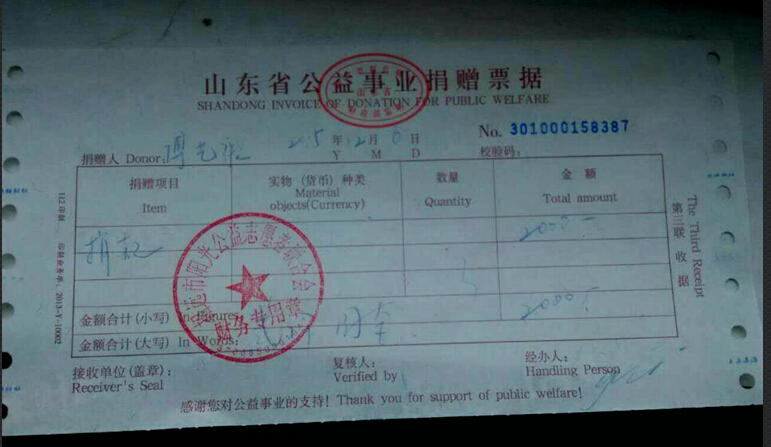 山东省公益事业捐赠票据
SHANDONG INVOICE OF DONATION FOR PUBLIC WELFARE
No. 301000158387
捐赠人 Donor: 2015 年 2 月 6 日 校验码:
Y M D
捐赠项目 实物(货币)种类 数量 金额
Item Material objects(Currency) Quantity Total amount
捐款 2000.-
金额合计(小写) In Figures 2000.-
金额合计(大写) In Words:
接收单位(盖章): 复核人: 经办人:
Receiver's Seal Verified by Handling Person
感谢您对公益事业的支持! Thank you for support of public welfare!
第三联 收据
The Third Receipt
市阳光公益志愿者联合会
财务专用章